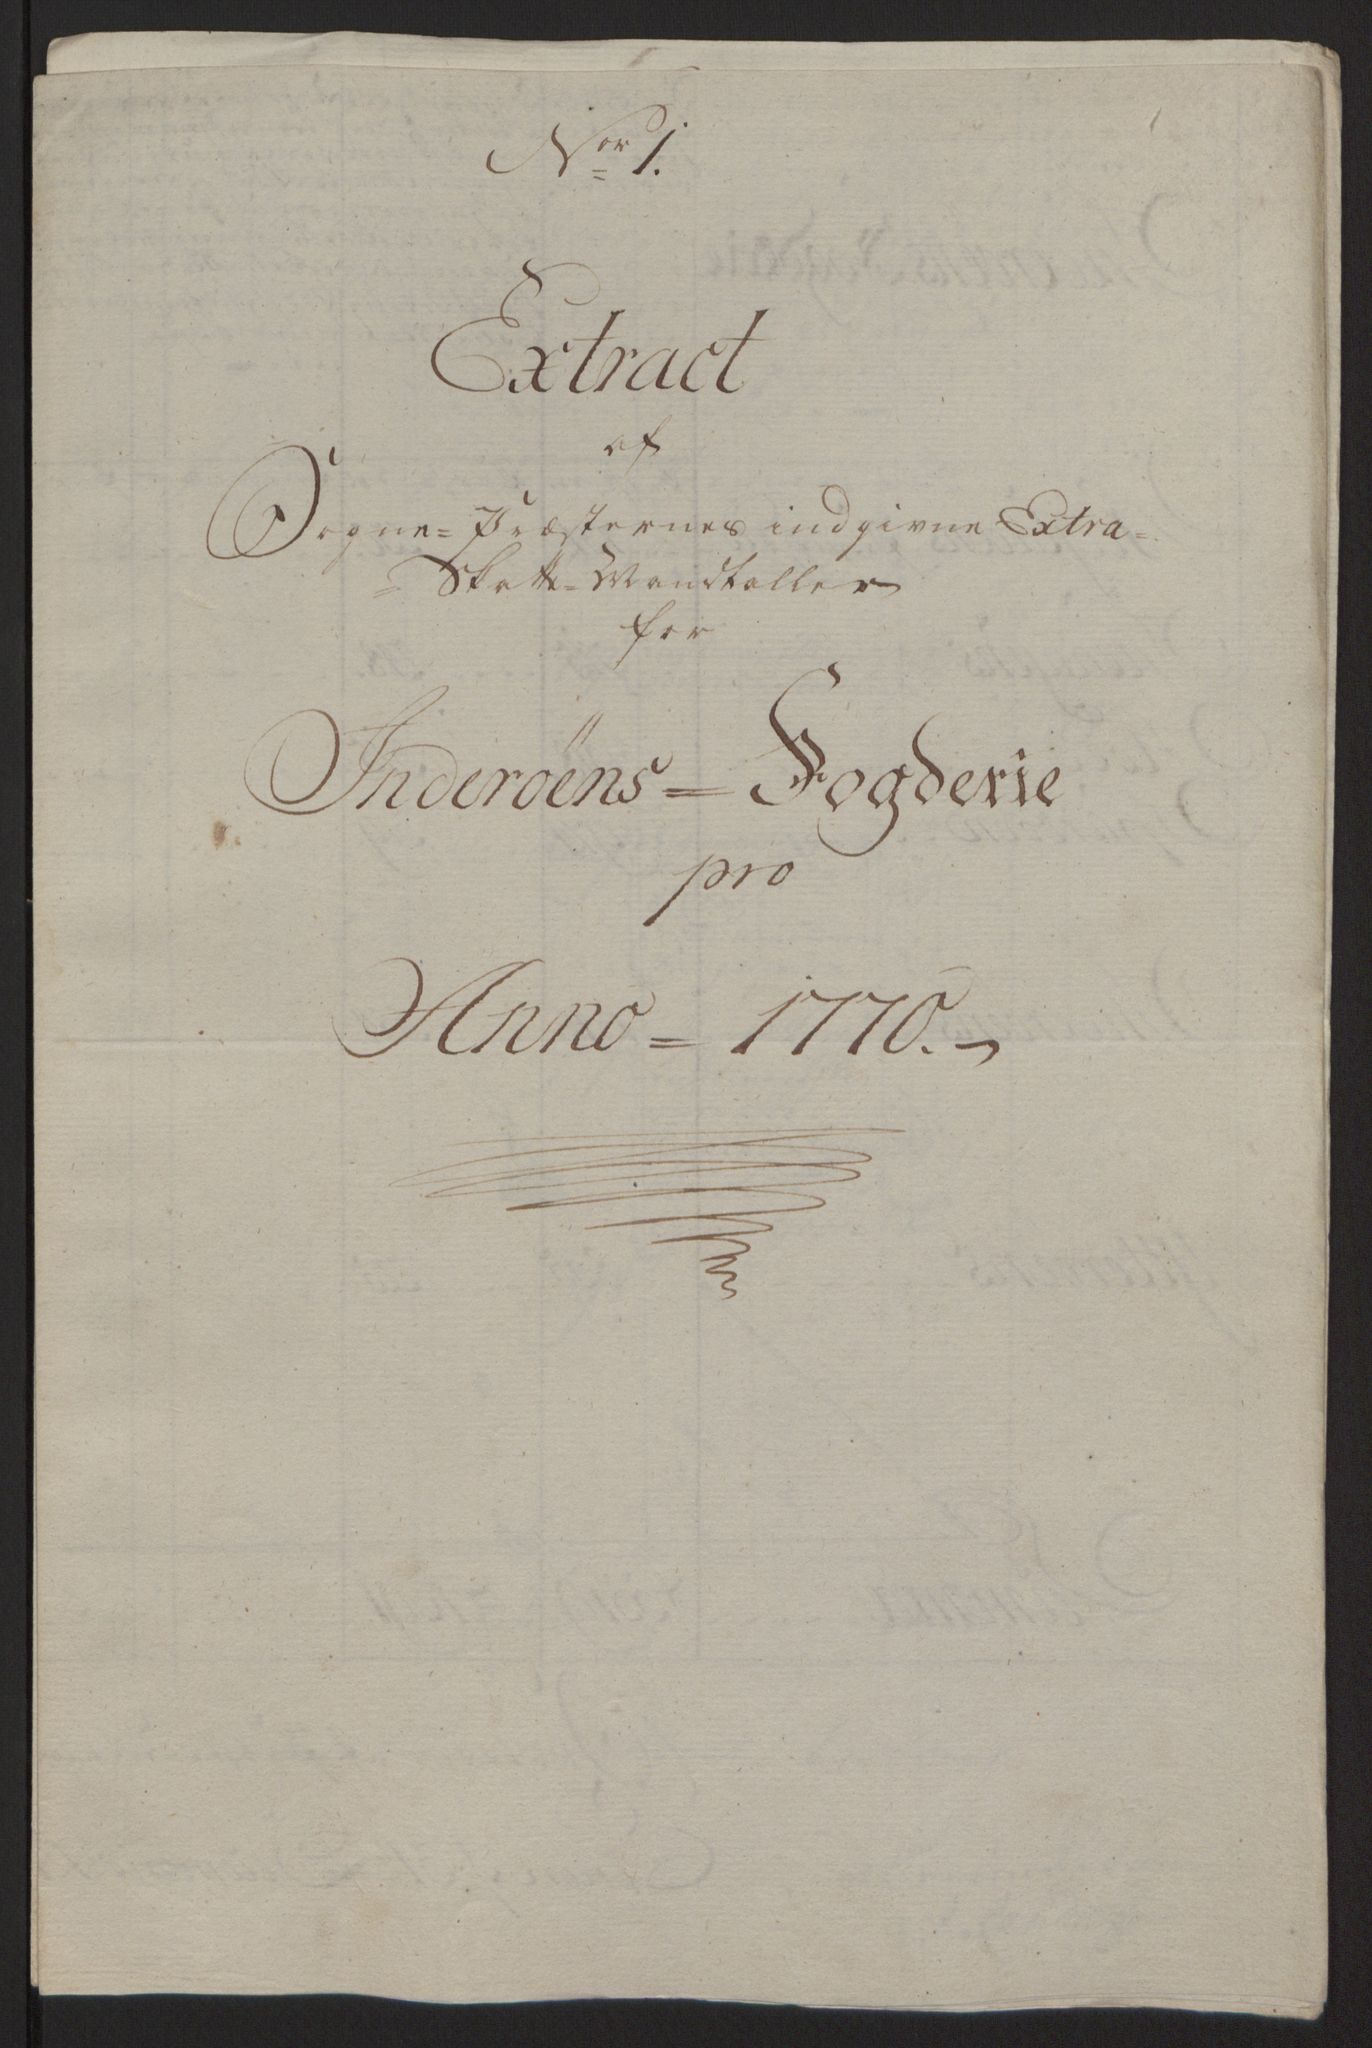 Nor 1.
Extract
af
Sogne=Præsternes indgivne Extra=
=Skatte=Mandtaller
for
Inderøens=Fogderie
pro
Anno=1770.